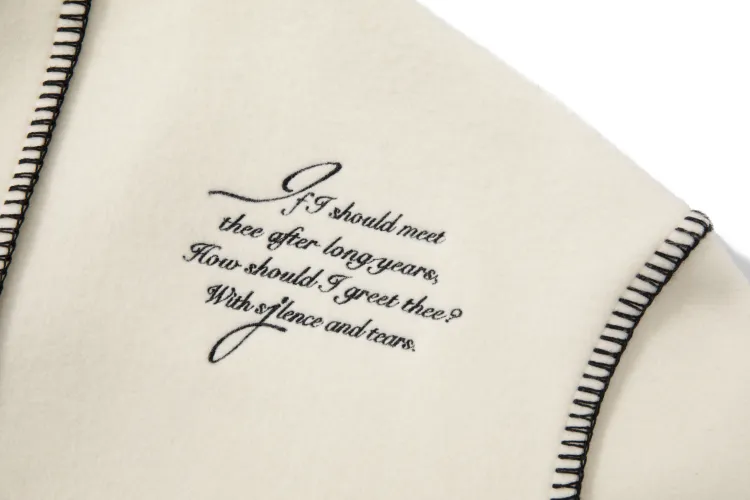 If I should meet
thee after long years,
How should I greet thee?
With silence and tears.